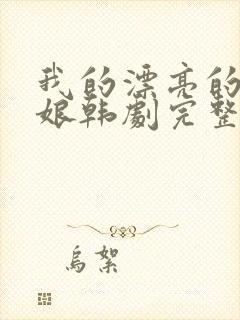 我的漂亮的
娘韩剧完整
乌絮